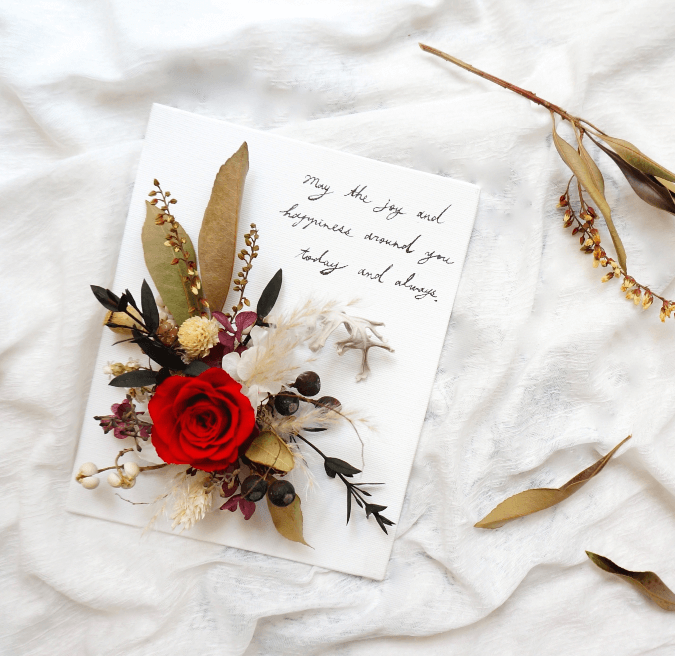 May the joy and
happiness around you
today and always.